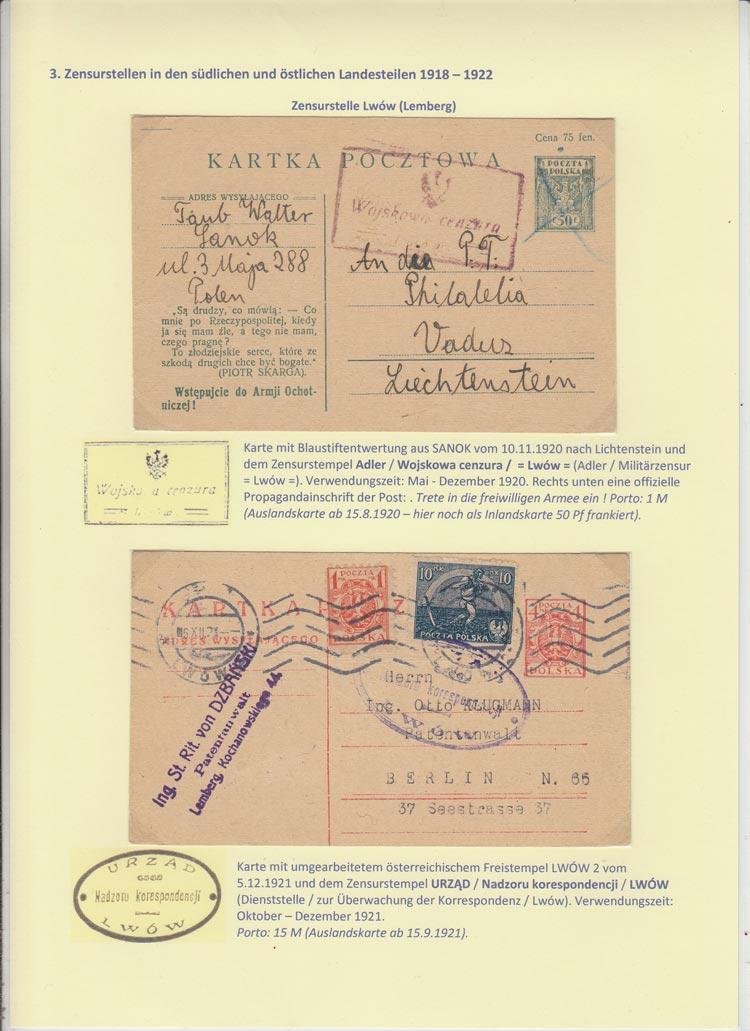 3. Zensurstellen in den südlichen und östlichen Landesteilen 1918 – 1922
Zensurstelle Lwów (Lemberg)
Cena 75 fen.
KARTKA POCZTOWA
POCZTA
POLSKA
50
Wojskowa cenzura
ADRES WYSYŁAJĄCEGO
Taub Walter
Sanok
ul. 3 Maja 288
Polen
An die P.T.
Philatelia
Vaduz
Liechtenstein
„Są drudzy, co mówią: — Co
mnie po Rzeczypospolitej, kiedy
ja się mam źle, a tego nie mam,
czego pragnę?
To złodziejskie serce, które ze
szkodą drugich chce być bogate.“
(PIOTR SKARGA).
Wstępujcie do Armji Ochot-
niczej!
Wojsko a cenzura
= Lwów =
Karte mit Blaustiftentwertung aus SANOK vom 10.11.1920 nach Lichtenstein und
dem Zensurstempel Adler / Wojskowa cenzura / = Lwów = (Adler / Militärzensur
= Lwów =). Verwendungszeit: Mai - Dezember 1920. Rechts unten eine offizielle
Propagandainschrift der Post: . Trete in die freiwilligen Armee ein ! Porto: 1 M
(Auslandskarte ab 15.8.1920 – hier noch als Inlandskarte 50 Pf frankiert).
KARTKA P CZ
ADRES WYSYŁAJĄCEGO
LWÓW
1 POCZTA 1
POLSKA
10 MK 10
POCZTA POLSKA
1 POCZTA 1
POLSKA
Nadzoru korespondencji
LWÓW
Ing. St. Rit. von DZBAŃSKI
Patentanwalt
Lemberg, Kochanowskiego 44.
Herrn
Ing. Otto KLUGMANN
Patentanwalt
BERLIN N. 65
37 Seestrasse 37
URZĄD
Nadzoru korespondencji
LWÓW
Karte mit umgearbeitetem österreichischem Freistempel LWÓW 2 vom
5.12.1921 und dem Zensurstempel URZĄD / Nadzoru korespondencji / LWÓW
(Dienststelle / zur Überwachung der Korrespondenz / Lwów). Verwendungszeit:
Oktober – Dezember 1921.
Porto: 15 M (Auslandskarte ab 15.9.1921).